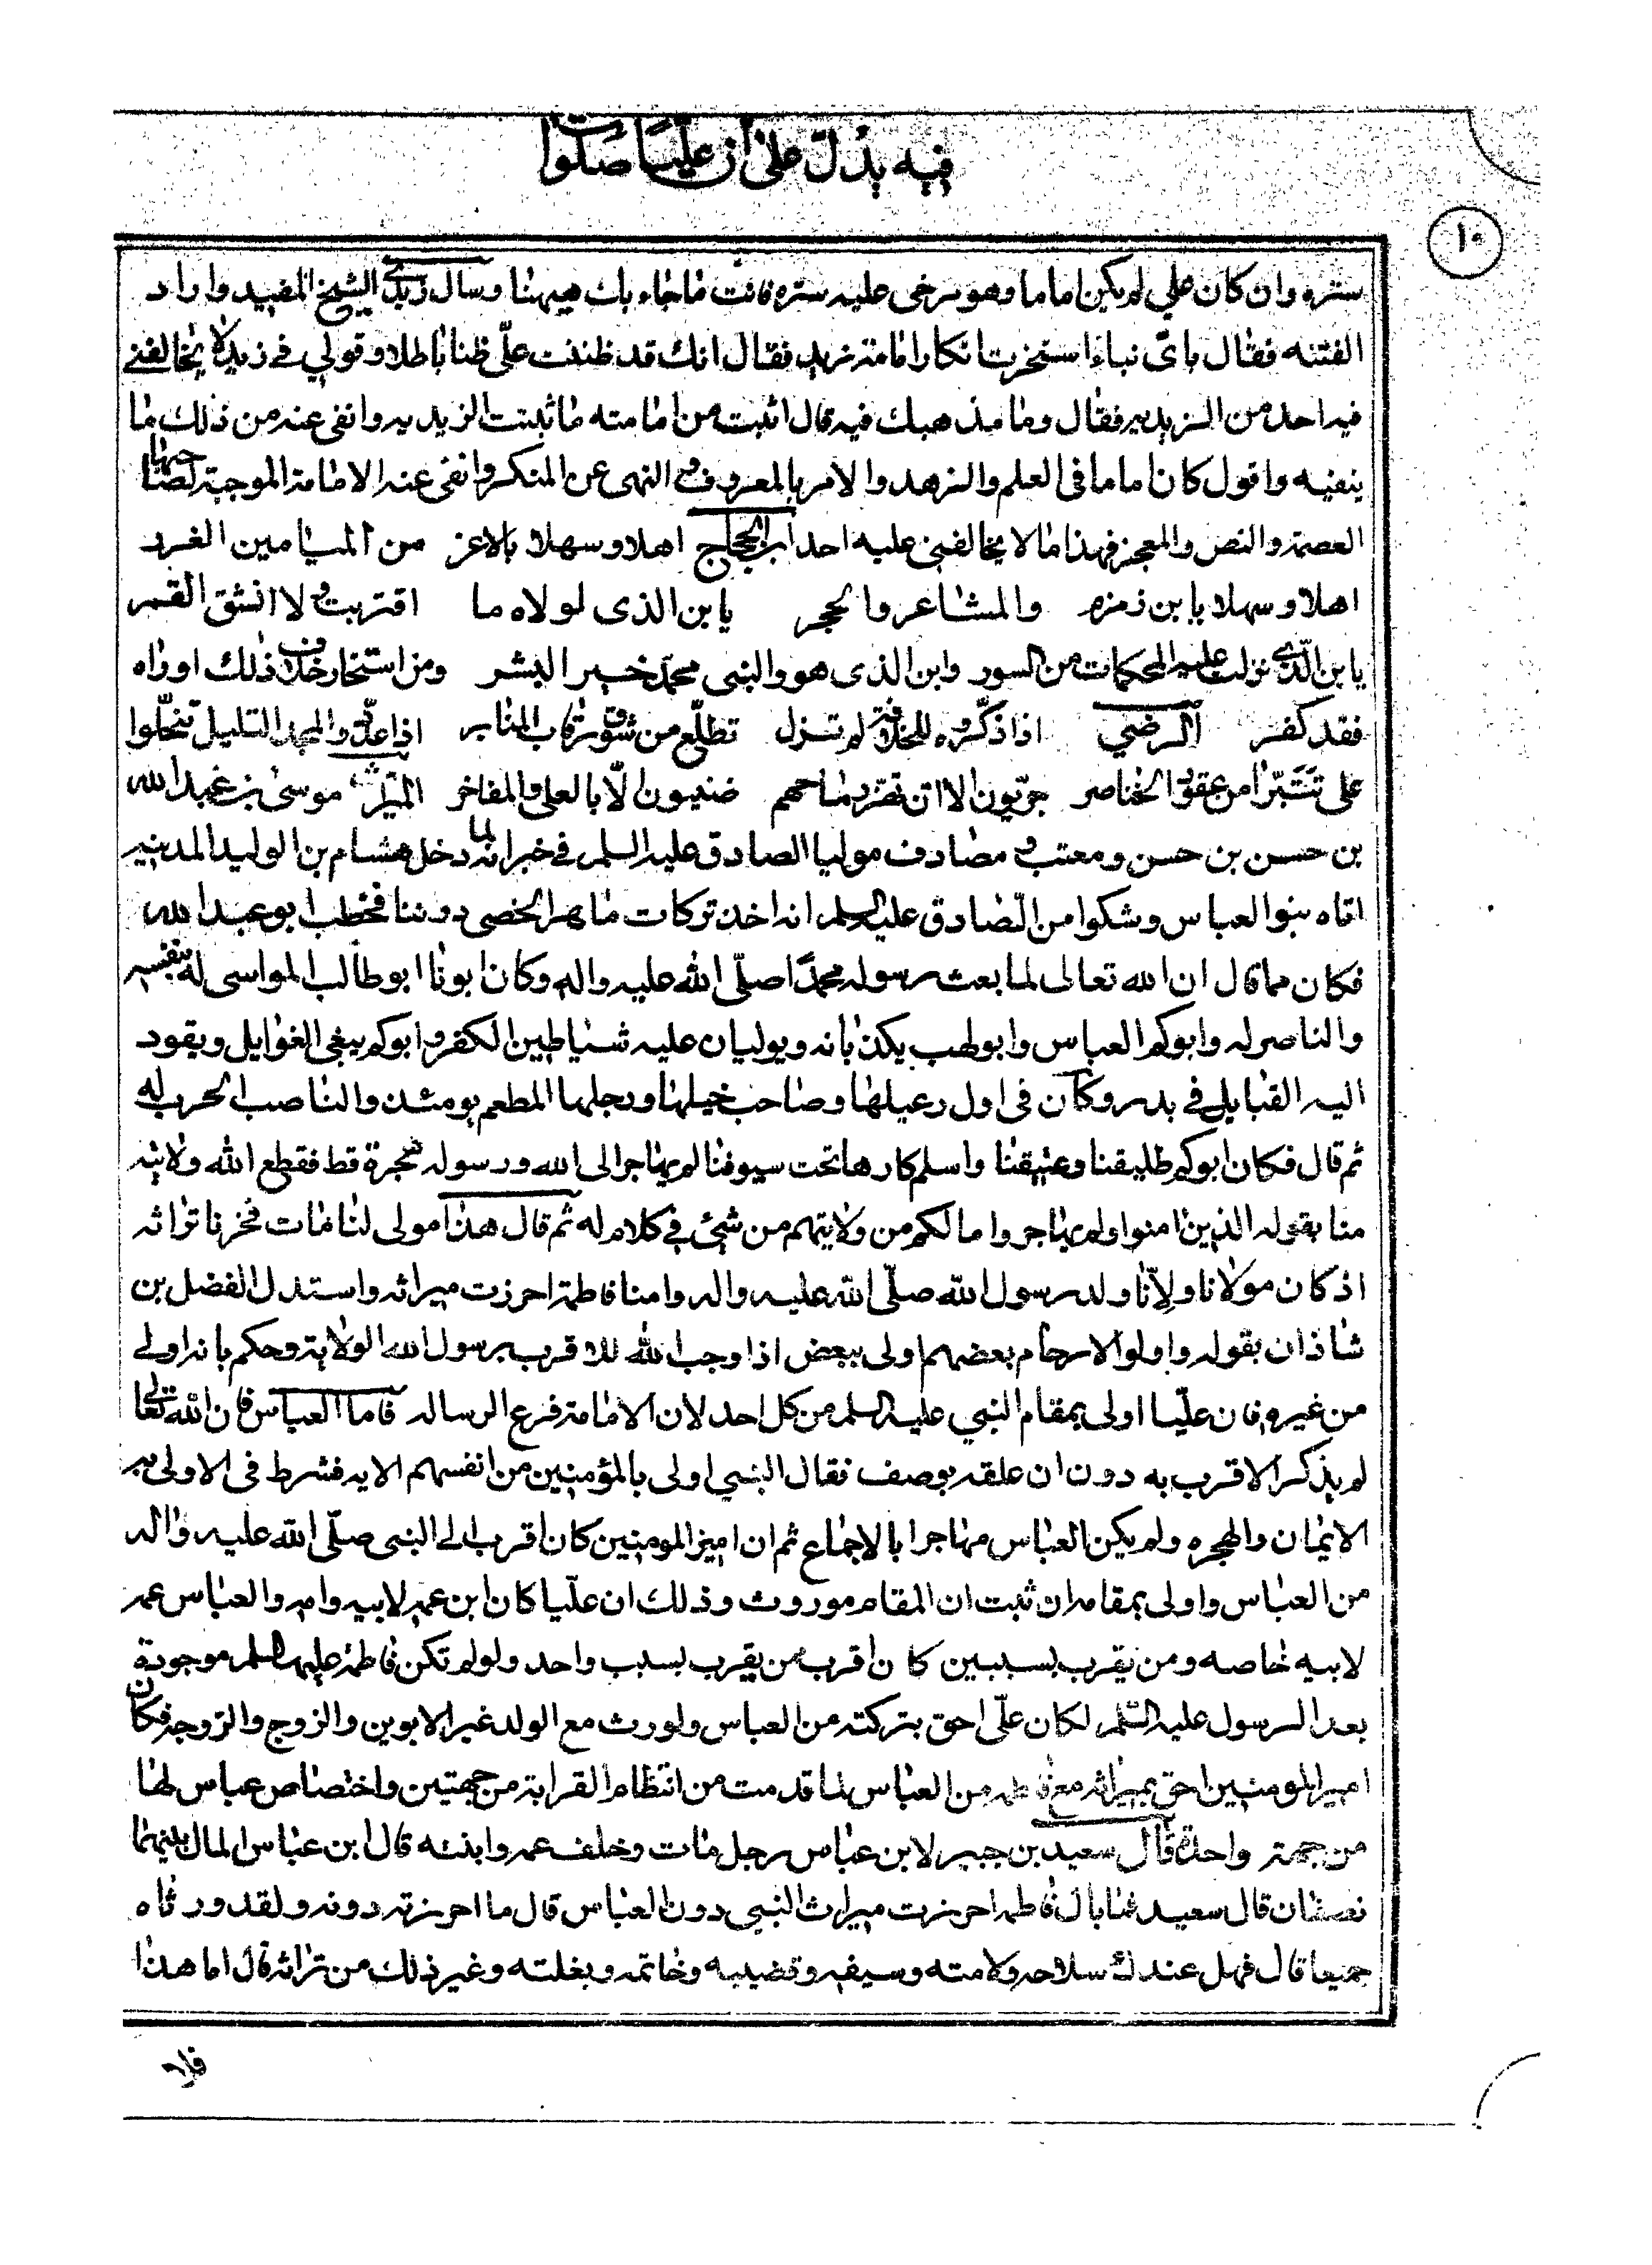 فيه يدل على ان عليا صلوات
١٠
ستره وان كان علي لم يكن اماما وهو مرخى عليه ستره فانت ما جاء بك هيهنا وسال زيدي الشيخ المفيد واراد
الفتنه فقال باى نباء استخرت انكار امامة زيد فقال انك قد ظننت علىّ ظنا باطلا وقولي في زيد لا يخالفني
فيه احد من الزيديه فقال وما مذهبك فيه قال اثبت من امامته ما ثبتت الزيديه وانفى عنه من ذلك ما
ينفيه واقول كان اماما في العلم والزهد والامر بالمعروف والنهى عن المنكر وانفى عنه الامامة الموجبة لصاحبها
العصمة والنص والمعجز فهذا مالا يخالفنى عليه احد ابن الحجاج اهلا وسهلا بالاغر من الميامين الغرر
اهلا وسهلا يا بن زمزم والمشاعر والحجر يا بن الذى لولاه ما اقتربت ولا انشق القمر
يا بن الذي نزلت عليه المحكمات من السور وابن الذى هو والنبى محمد خير البشر ومن استخار خلاف ذلك او راه
فقد كفر الرضي اذا ذكروه للخلافة لم تزل تطلّع من شوق رقاب المنابر اذا عدّد والمجد التليل تنحّلوا
على تتبرا من عقود الخناصر جريّون الا ان تقرد ماحهم ضنيون الّا بالعلى والمفاخر موسى بن عبد الله
بن حسن بن حسن ومعتب ومصادف موليا الصادق عليه السلم في خبر انه لما دخل هشام بن الوليد المدينه
اتاه بنو العباس وشكوا من الصادق عليه السلم انه اخذ تركات ماهر الخصى دوننا فخطب ابو عبد الله
فكان مما قال ان الله تعالى لما بعث رسوله محمدا صلّى الله عليه واله وكان ابونا ابو طالب المواسى له بنفسه
والناصر له وابوكم العباس وابو لهب يكذبانه ويوليان عليه شياطين الكفر وابوكم يبغى الغوايل ويقود
اليه القبايل في بدر وكان في اول رعيلها وصاحب خيلها ورجلها المطعم يومئذ والناصب الحرب له
ثم قال فكان ابوكم طليقنا وعتيقنا واسلم كارها تحت سيوفنا لم يهاجر الى الله ورسوله هجرة قط فقطع الله ولايته
منا بقوله الذين امنوا ولم يهاجروا مالكم من ولايتهم من شئ في كلام له ثم قال هذا مولى لنا مات فحزنا تراثه
اذ كان مولانا ولانّا ولد رسول الله صلّى الله عليه واله وامنا فاطمة احرزت ميراثه واستدل الفضل بن
شاذان بقوله واولو الارحام بعضهم اولى ببعض اذا وجب الله للاقرب برسول الله الولاية وحكم بانه اولى
من غيره فان عليّا اولى بمقام النبي عليه السلم من كل احد لان الامامة فرع الرساله فاما العباس فان الله تعالى
لم يذكر الاقرب به دون ان علقه بوصف فقال النبي اولى بالمؤمنين من انفسهم الايه فشرط فى الاولى به
الايمان والهجره ولم يكن العباس مهاجرا بالاجماع ثم ان امير المومنين كان اقرب الى النبى صلّى الله عليه واله
من العباس واولى بمقامه ان ثبت ان المقام موروث وذلك ان عليّا كان ابن عمه لابيه وامه والعباس عمه
لابيه خاصه ومن تقرب بسببين كان اقرب من يقرب بسبب واحد ولو لم تكن فاطمة عليها السلم موجودة
بعد الرسول عليه السّلم لكان علّى احق بتركته من العباس ولو ورث مع الولد غير الابوين والزوج والزوجة فكان
امير المومنين احق بميراثه مع فاطمه من العباس لما قدمت من انتظام القرابة من جهتين واختصاص عباس لها
من جهة واحدة قال سعيد بن جبير لابن عباس رجل مات وخلف عمه وابنته قال ابن عباس المال بينهما
نصفان قال سعيد فما بال فاطمه احرزت ميراث النبي دون العباس قال ما احرزته دونه ولقد ورثاه
جميعا قال فهل عندك سلاحه ولامته وسيفه وقضيبه وخاتمه وبغلته وغير ذلك من تراثه قال اما هذا
فلا